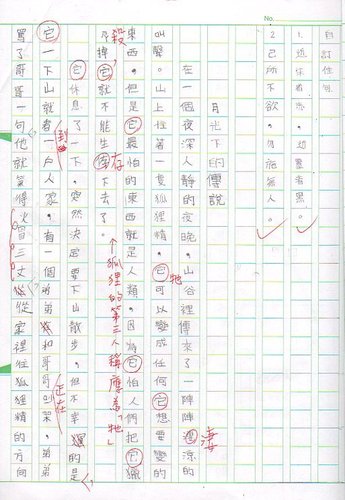 No.
自訂佳句
2.己所不欲,勿施於人。
月光下的傳說
在一個夜深人靜的夜晚,山谷裡傳來了一陣陣淒涼的
叫聲。山上住著一隻狐狸精,它可以變成任何它想要變的
牠
東西。但是它最怕的東西就是人類,因為它怕人們把它獵
殺掉,它就不能生存下去了。
↑狐狸的第三人稱應為「牠」
它休息了一下,突然決定要下山散步,但不幸的是,
它一下山就看到一戶人家,有一個弟弟和哥哥正在吵架,弟弟
罵了哥哥一句,他就氣得火冒三丈從家裡往狐狸精的方向